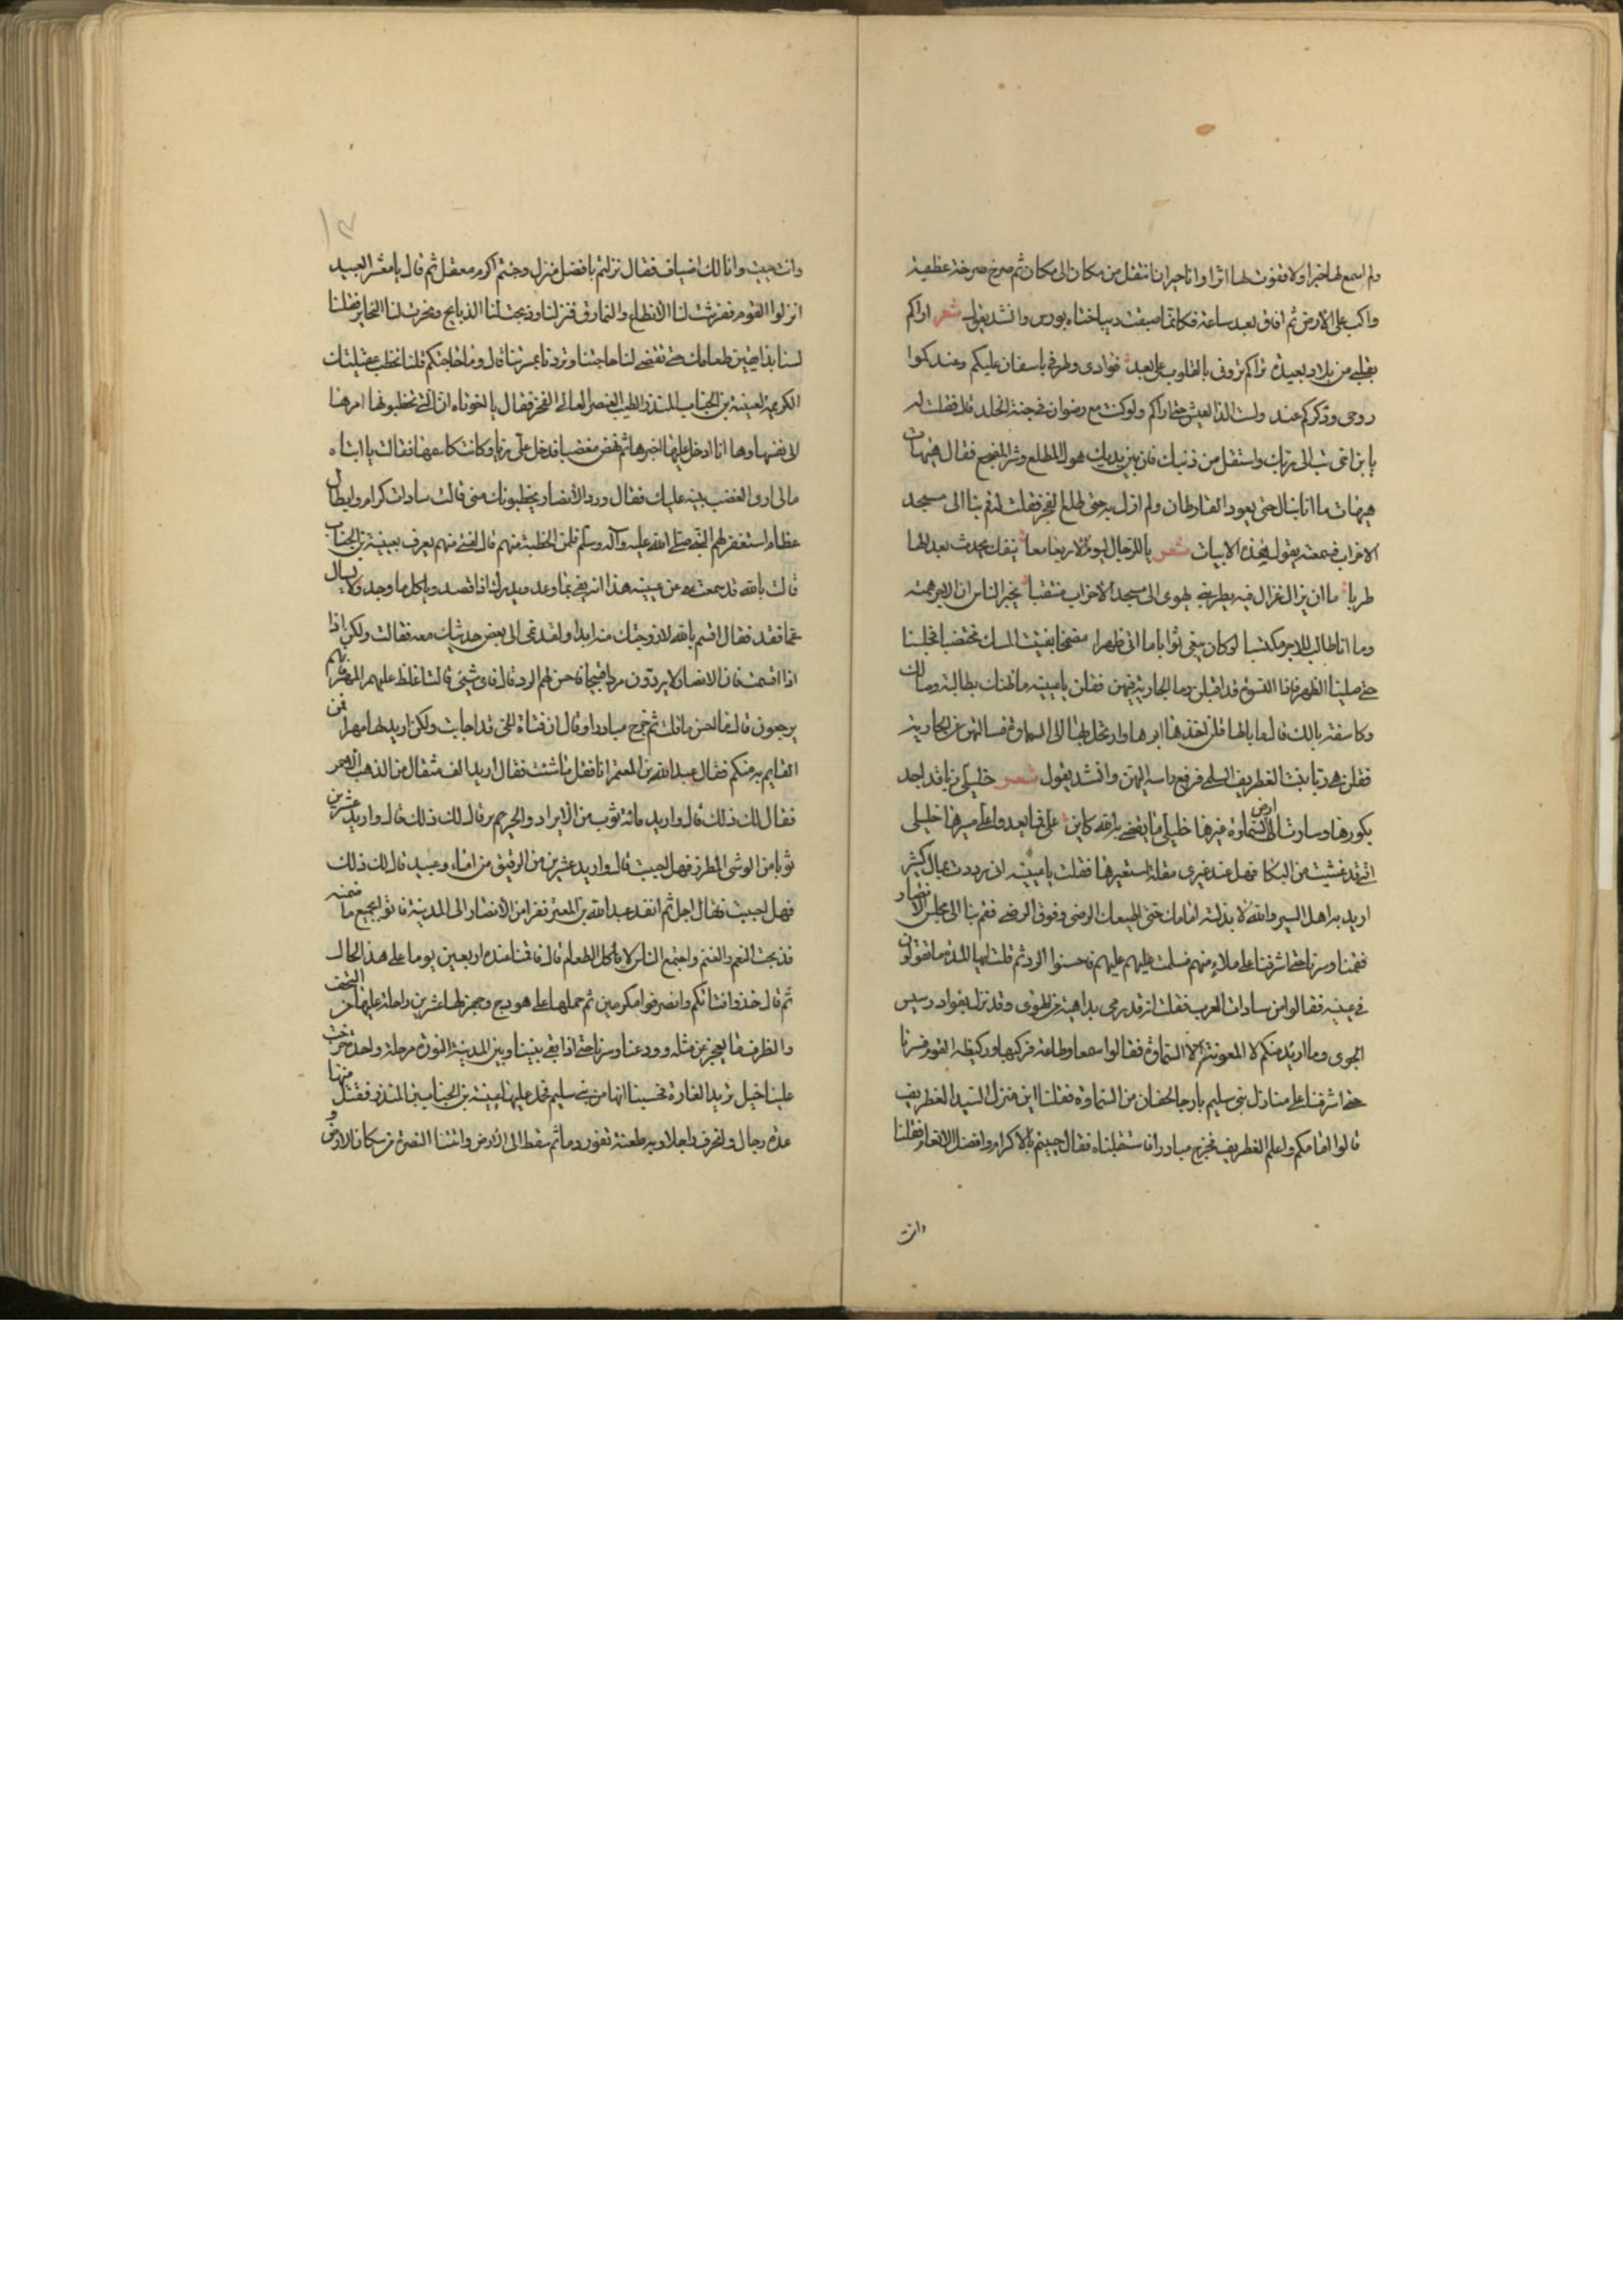 ولم اسمع لها خبرا ولا قفوت لها اثرا وانا حيران انتقل من مكان الى مكان ثم صرخ صرخة عظيمة
واكب على الارض ثم افاق بعد ساعة فكانما صبغت ديباجتاه بورس وانشد يقول شعر اراكم
بقلبى من بلاد بعيدة تراكم تروني بالقلوب على بعد فوادى وطرفى ياسفان عليكم وعندكوا
روحى وذكركم عندى ولست الذ العيش حتى اراكم ولو كنت مع رضوان فى جنة الخلد قال فقلت له
يا بن اخى تب الى ربك واستقل من ذنبك فان بين يديك هول المطلع وشر المضجع فقال هيهات
هيهات ما انا بسال حتى يعود القارظان ولم ازل به حتى طلع الفجر فقلت له قم بنا الى مسجد
الاحزاب فسمعته يقول هذه الابيات شعر يا للرجال ليوم الاربعا معا ينفك يحدث بعد لها
طربا ما ان يزال غزال فيه يطربنى يهوى الى مسجد الاحزاب منتقبا يخبر الناس ان الاجر همته
وما انا طالب للاجر مكتسبا لو كان يبغى ثوابا ما اتى ظهرا مضمخا بفتيت المسك مختضبا فجلسنا
حتى صلينا الظهر فاذا النسوة قد اقبلن وما الجارية فيهن فقلن يا عيينه ما ظنك بطالبة وصالك
وكاسفة بالك قال ما بالها قلن اخذها ابوها وارتحل بها الى السماوة فسالتهن عن الجارية
فقلن هى ريا بنت الغطريف السلمى فرفع راسه اليهن وانشد يقول شعر خليلى ريا قد اجد
بكورها وسارت الى ارض السماوة عيرها خليلى ما يقضى به الله كاين على فما يعدو على مسيرها خليلى
انى قد عشيت من البكا فهل عند غيرى مقلة استعيرها فقلت يا عيينه انى وردت بمال كثير
اريد به اهل السير والله لا بذلنه امامك حتى ابلغك الرضى وفوق الرضى فقم بنا الى مجلس الانصار
فقمنا وسرنا حتى اشرفنا على ملاء منهم فسلمت عليهم فاحسنوا الرد ثم قلت ايها الملاء ما تقولون
فى عيينه فقالوا من سادات العرب فقلت انه قد رمى بداهية من الهوى وقد نزل بفواده رسيس
الجوى وما اريد منكم الا المعونة الى السماوة فقالوا سمعا وطاعة فركبنا وركب القوم فسرنا
حتى اشرفنا على منازل بنى سليم من السماوة فقلنا اين منزل السيد الغطريف
قالوا امامكم واعلم الغطريف فخرج مبادرا فاستقبلناه فقال حييتم بالاكرام وافضل الانعام فقلنا
وانت
١٣
وانت حييت وانا لك اضياف فقال نزلتم بافضل منزل وجئتم اكرم معقل ثم قال يا معشر العبيد
انزلوا القوم ففرشت لنا الانطاع والنمارق فنزلنا وذبحت لنا الذبايح ونحرت لنا النحاير فقلنا
لسنا بذائقين طعامك حتى تقضى لنا حاجتنا وتردنا بمسرتنا قال وما حاجتكم قلنا نخطب عقيلتك
الكريمة لعيينه بن الحباب المنذر الطيب العنصر العالى الفخر فقال يا اخوتاه ان التى تخطبونها امرها
لا نفسها وها انا ادخل عليها اخبرها ثم نهض مغضبا فدخل على ريا وكانت كاسمها فقالت يا ابتاه
مالى ارى الغضب بينه عليك فقال ورد الانصار يخطبونك منى قالت سادات كرام وابطال
عظام استغفر لهم النبى صلى الله عليه وآله وسلم فلمن الخطبة منهم قال لفتى منهم يعرف بعيينه بن الحباب
قالت بالله قد سمعت عن عيينه هذا انه يفى بما وعد ويدرك اذا قصد وياكل ما وجد ولا يسال
عما فقد فقال اقسم بالله لا زوجتك منه ابدا ولقد نمى الى بعض حديثك معه فقالت ولكن اذا
اذا اقسمت فان الانصار لا يردون مردا قبيحا فاحسن لهم الرد قال فاى شىء قالت اغلظ عليهم المهر فانهم
يرجعون قال ما احسن ما قلت ثم خرج مبادرا وقال ان فتاة الحى قد اجابت ولكن اريد لها مهرا فمن
القايم به منكم فقال عبد الله بن المعمر انا فقل ما شئت فقال اريد الف مثقال من الذهب الاحمر
فقال لك ذلك قال واريد مائة ثوب من الابراد والحرير قال لك ذلك قال واريد عشرين
ثوبا من الوشى المطرز فهل اجبت قال واريد عشرين من الرقيق من اماء وعبيد قال لك ذلك
فهل اجبت فقال اجل ثم انفذ عبد الله بن المعمر نفرا من الانصار الى المدينة فاتوا بجميع ما ضمنه
فذبحت النعم والغنم واجتمع الناس لاكل الطعام قال فاقمنا عنده اربعين يوما على هذا الحال
ثم قال خذوا فتاتكم وانصرفوا مكرمين ثم حملها على هودج وجهز لها عشرين راحلة عليها من التحف
والظرف ما يعجز عن مثله وودعنا وسرنا حتى اذا بقى بيننا وبين المدينة المنورة مرحلة واحدة خرجت
علينا خيل تريد الغارة نحسبنا انها من بنى سليم فحمل عليها عيينه بن الحباب بن المنذر فقتل منها
عدة رجال وانحرف راجلا وبه طعنة تفور دما ثم سقط الى الارض واتتنا النصرة من سكان الارض